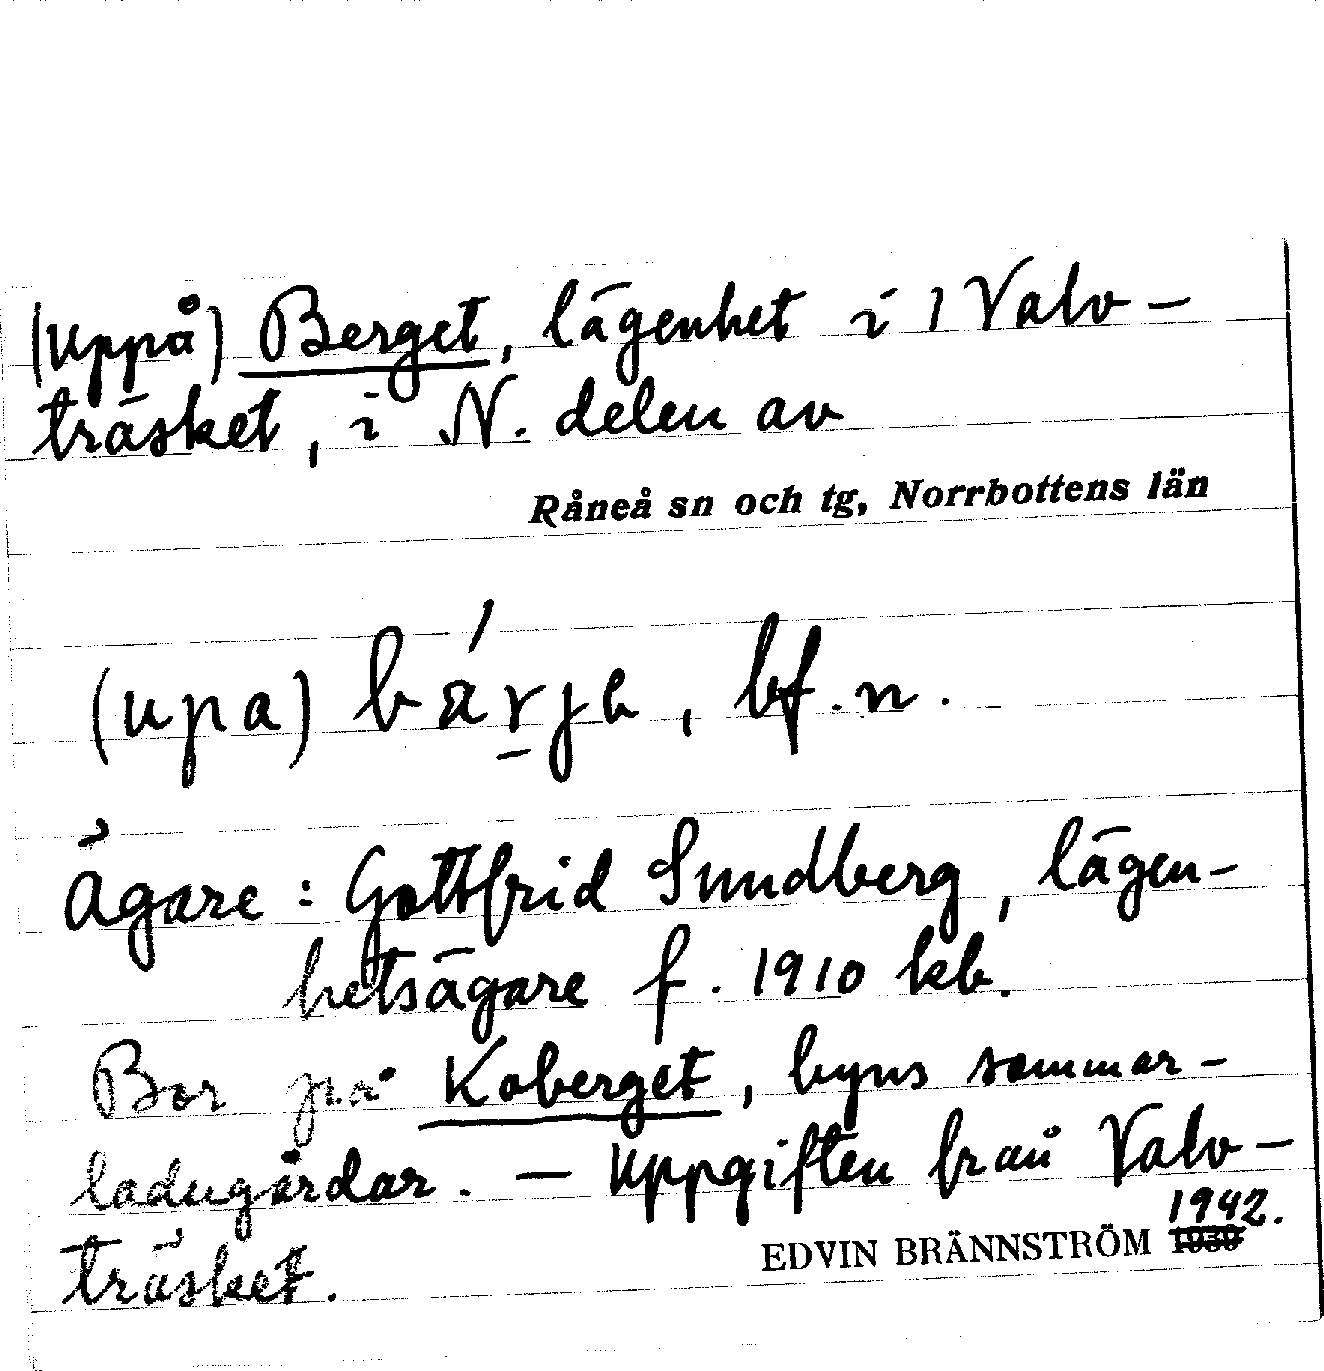 (uppå) Berget, lägenhet i 1 Valv-
träsket, i N. delen av
Råneå sn och tg, Norrbottens län
(upa) bárje, bf. n.
Ägare: Gottfrid Sundberg, lägen-
hetsägare f. 1910 kb.
Bor på Koberget, byns sommar-
ladugårdar. — Uppgiften från Valv-
träsket.
EDVIN BRÄNNSTRÖM 1939 1942.